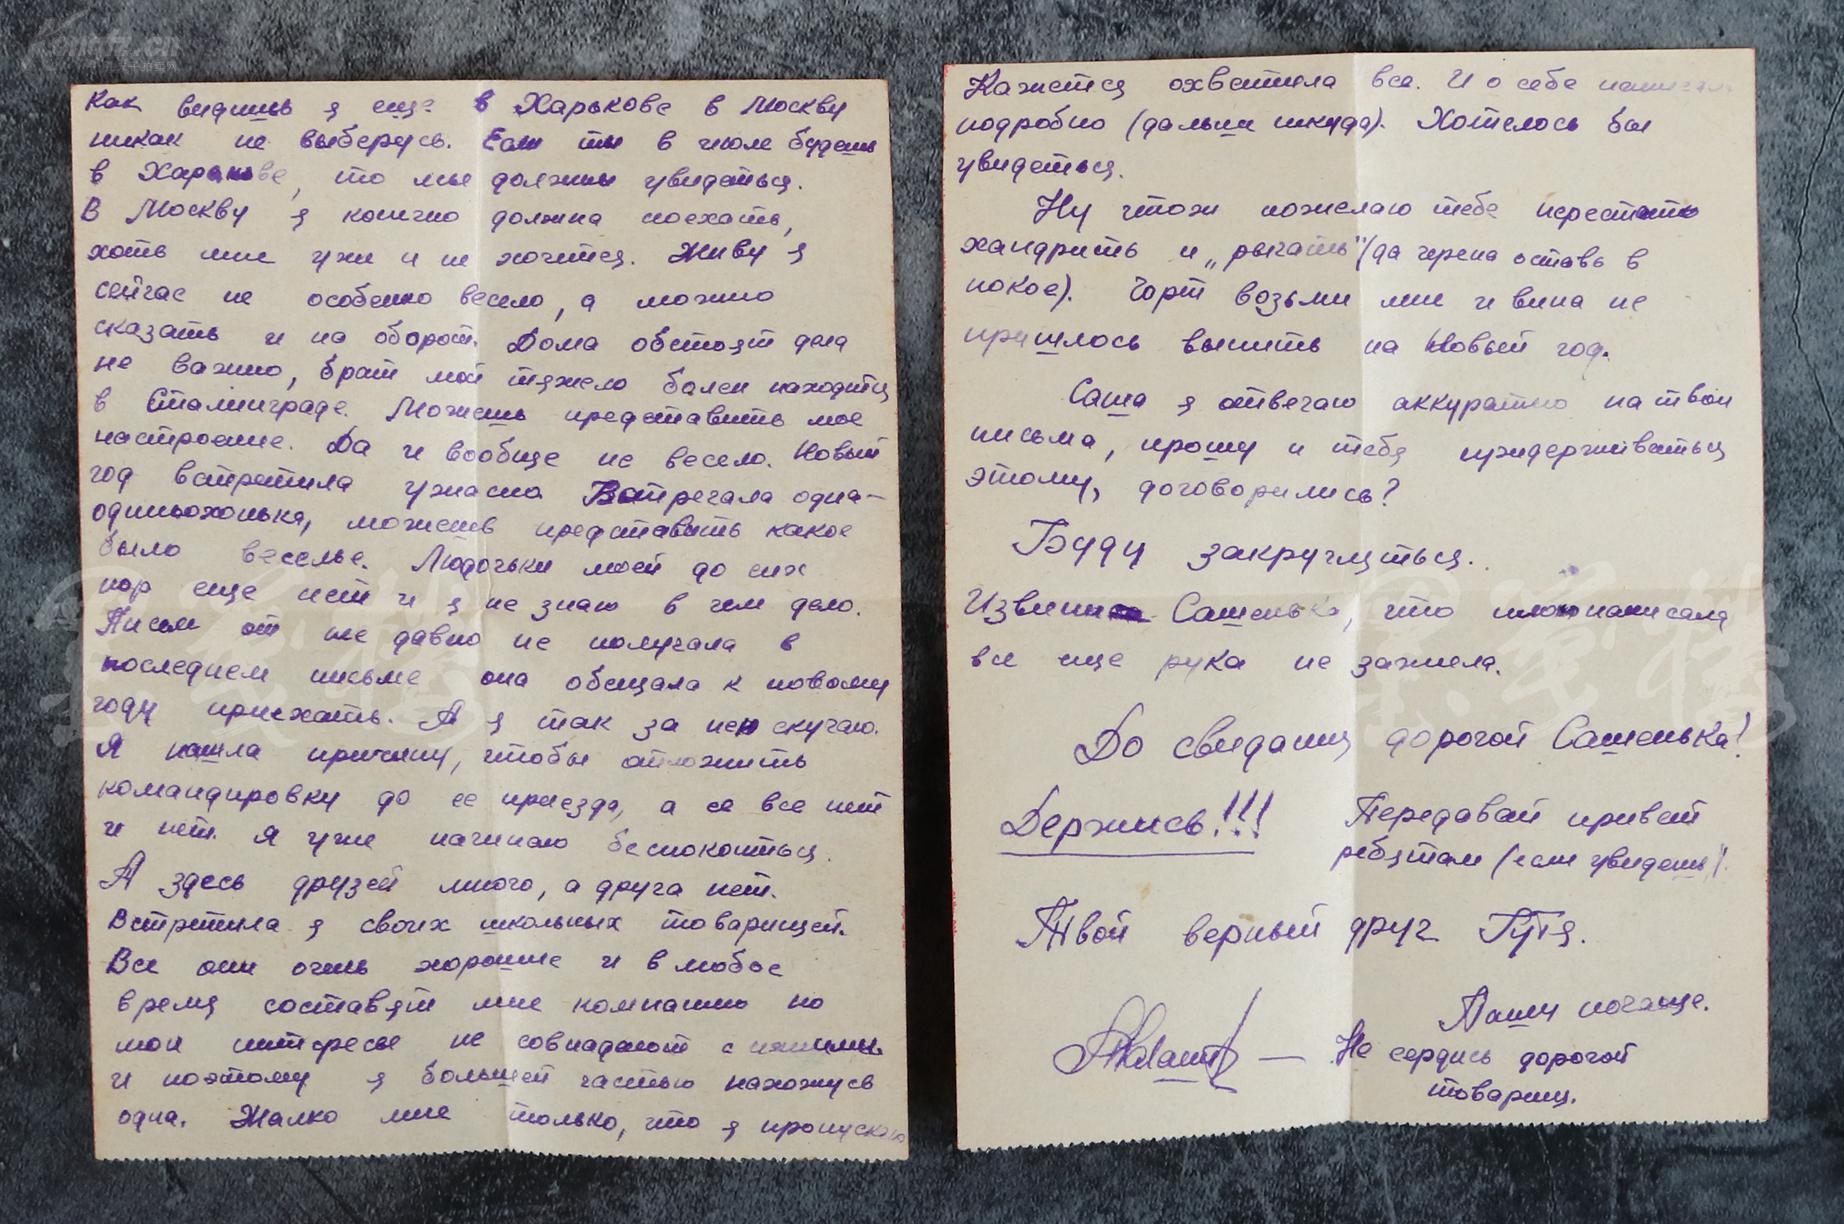 Как видишь я еще в Харькове в Москву
никак не выберусь. Если ты в июле будешь
в Харькове, то мы должны увидаться.
В Москву я конечно должна поехать,
хоть мне уже и не хочется. Живу я
сейчас не особенно весело, а можно
сказать и на оборот. Дома обстоят дела
не важно, брат мой тяжело болен находится
в Сталинграде. Можешь представить мое
настроение. Да и вообще не весело. Новый
год встретила ужасно Встречала одна-
одинёхонька, можешь представить какое
было веселье. Людочьки моей до сих
пор еще нет и я не знаю в чем дело.
Писем от нее давно не получала в
последнем письме она обещала к новому
году приехать. А я так за ней скучаю.
Я нашла причину, чтобы отложить
командировку до ее приезда, а ее все нет
и нет. Я уже начинаю беспокоиться.
А здесь друзей много, а друга нет.
Встретила я своих школьных товарищей.
Все они очень хорошие и в любое
время составят мне компанию но
мои интересы не совпадают с ихними
и поэтому я большей частью нахожусь
одна. Жалко мне только, что я пропускаю
Кажется охватила все. И о себе написала
подробно (дальше некуда). Хотелось бы
увидеться.
Ну чтож пожелаю тебе перестать
хандрить и „рычать" (да черепа оставь в
покое). Чорт возьми мне и вина не
пришлось выпить на Новый год.
Саша я отвечаю аккуратно на твои
письма, прошу и тебя придерживаться
этому, договорились?
Буду закругляться..
Извини Сашенька, что плохо написала
все еще рука не зажила.
До свидания дорогой Сашенька!
Держись!!!
Передавай привет
ребятам (если увидешь).
Твой верный друг Гутя.
Пиши почаще.
— Не сердись дорогой
товарищ.